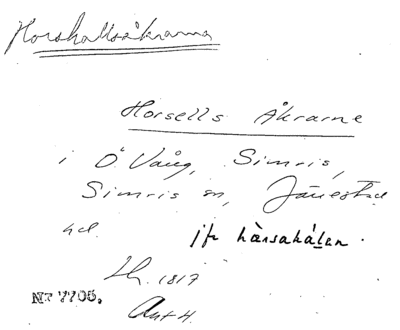 Horshallsåkrarna
Horsells Åkrarne
i Ö. Vång, Simris,
Simris sn, Järrestad
hd. jfr hårsahålan.
Lh. 1817
No 7706. Ant. H.